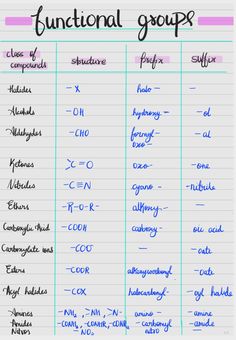 functional groups
class of compounds structure Prefix Suffix
Halides -X halo - -
Alcohols -OH hydroxy- -ol
Aldehydes -CHO formyl- -al
oxo-
Ketones >C=O oxo- -one
Nitriles -C≡N cyano - -nitrile
Ethers -R-O-R- alkoxy- -
Carboxylic Acid -COOH carboxy- oic acid
Carboxylate ions -COO⁻ - -oate
Esters -COOR alkoxycarbonyl -oate
Acyl halides -COX halocarbonyl- -oyl halide
Amines -NH₂, >NH, >N- amino - amine
Amides -CONH₂, -CONHR, -CONR₂ -carbonyl -amide
Nitros -NO₂ nitro -